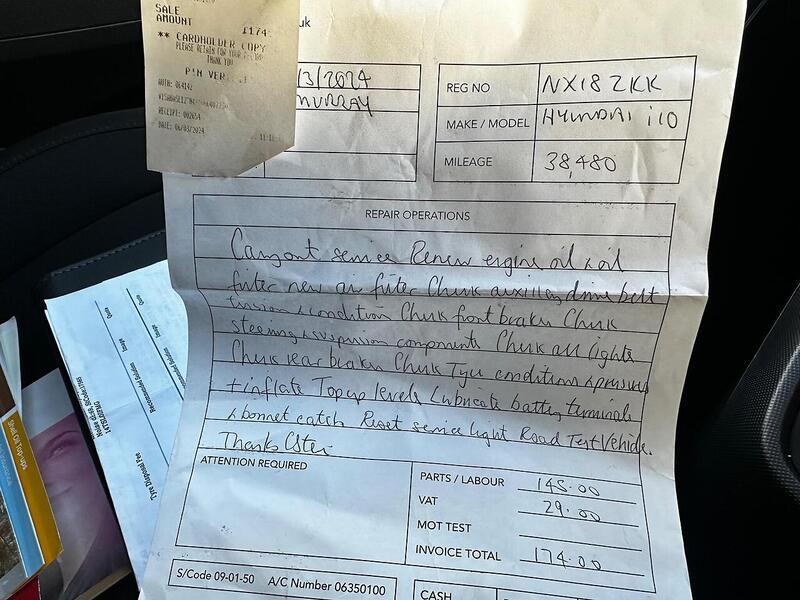 SALE
AMOUNT £174
** CARDHOLDER COPY
PLEASE RETAIN FOR YOUR
THANK YOU
PIN VER
AUTH: 064142
RECEIPT: 002654
DATE: 06/03/2024
uk
/3/2024
MURRAY
REG NO NX18 ZKK
MAKE / MODEL HYUNDAI i10
MILEAGE 38,480
REPAIR OPERATIONS
Carryout service Renew engine oil & oil
filter new air filter Check auxillary drive belt
tension & condition Check front brakes Check
steering & suspension components Check all lights
Check rear brakes Check Tyre condition & pressures
+ inflate Top up levels Lubricate battery terminals
& bonnet catch Reset service light Road Test Vehicle.
Thanks
ATTENTION REQUIRED
PARTS / LABOUR 145.00
VAT 29.00
MOT TEST
INVOICE TOTAL 174.00
S/Code 09-01-50 A/C Number 06350100
CASH
Tyre Disposal Fee
Recommended Solution
Image
Quote
Recommended Solution
Image
Quote